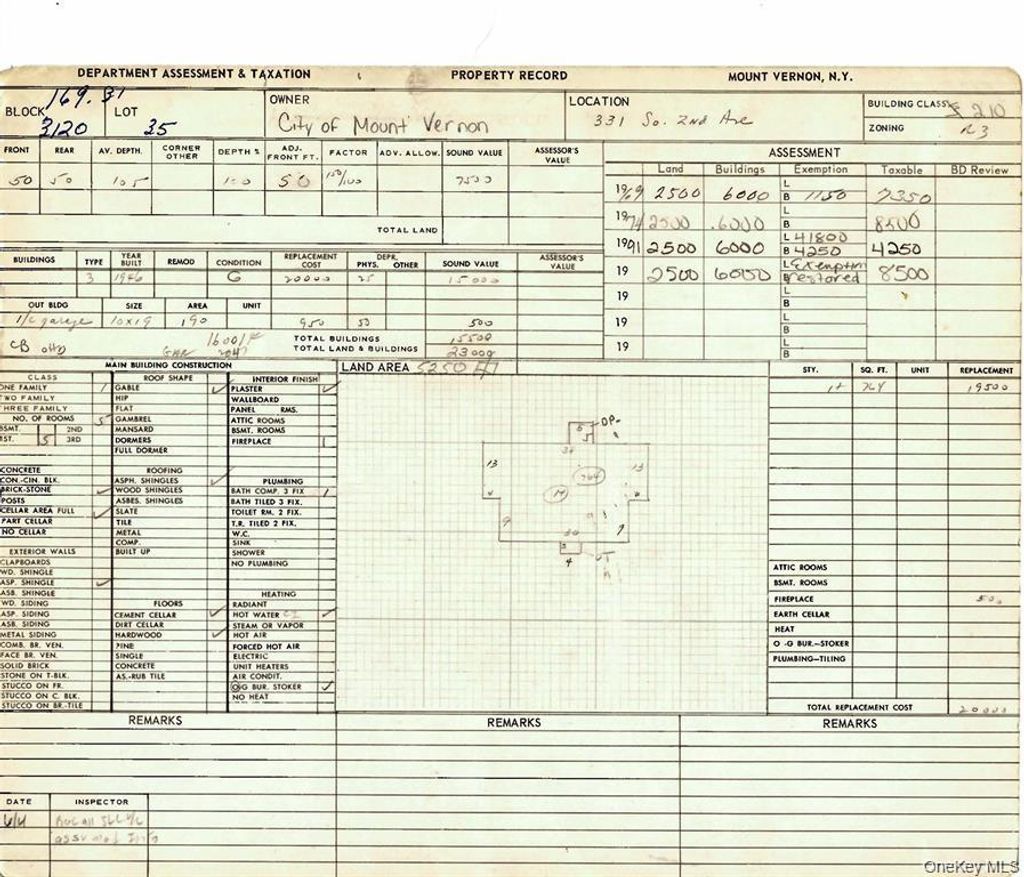 DEPARTMENT ASSESSMENT & TAXATION PROPERTY RECORD MOUNT VERNON, N.Y.
BLOCK 169.31 3120 LOT 35
OWNER City of Mount Vernon
LOCATION 331 So. 2nd Ave
BUILDING CLASS 210
ZONING R3
FRONT REAR AV. DEPTH. CORNER OTHER DEPTH % ADJ. FRONT FT. FACTOR ADV. ALLOW. SOUND VALUE ASSESSOR'S VALUE
50 50 105 100 50 150/100 7500
TOTAL LAND
ASSESSMENT
Land Buildings Exemption Taxable BD Review
1969 2500 6000 L B 1150 7350
1974 2500 6000 L B 8500
1991 2500 6000 L 41800 B 4250 4250
19 2500 6000 L B Exemption restored 8500
19 L B
19 L B
19 L B
BUILDINGS TYPE YEAR BUILT REMOD CONDITION REPLACEMENT COST DEPR. PHYS. OTHER SOUND VALUE ASSESSOR'S VALUE
3 1946 G 20000 25 15000
OUT BLDG SIZE AREA UNIT
1/c garage 10x19 190 950 50 500
CB
TOTAL BUILDINGS 15500
TOTAL LAND & BUILDINGS 23000
MAIN BUILDING CONSTRUCTION
CLASS
ONE FAMILY 1
TWO FAMILY
THREE FAMILY
NO. OF ROOMS 5
BSMT. 2ND
1ST. 5 3RD
CONCRETE
CON.-CIN. BLK.
BRICK-STONE
POSTS
CELLAR AREA FULL
PART CELLAR
NO CELLAR
EXTERIOR WALLS
CLAPBOARDS
WD. SHINGLE
ASP. SHINGLE
ASB. SHINGLE
WD. SIDING
ASP. SIDING
ASB. SIDING
METAL SIDING
COMB. BR. VEN.
FACE BR. VEN.
SOLID BRICK
STONE ON T-BLK.
STUCCO ON FR.
STUCCO ON C. BLK.
STUCCO ON BR.-TILE
ROOF SHAPE
GABLE
HIP
FLAT
GAMBREL
MANSARD
DORMERS
FULL DORMER
ROOFING
ASPH. SHINGLES
WOOD SHINGLES
ASBES. SHINGLES
SLATE
TILE
METAL
COMP.
BUILT UP
FLOORS
CEMENT CELLAR
DIRT CELLAR
HARDWOOD
PINE
SINGLE
CONCRETE
AS.-RUB TILE
INTERIOR FINISH
PLASTER
WALLBOARD
PANEL RMS.
ATTIC ROOMS
BSMT. ROOMS
FIREPLACE 1
PLUMBING
BATH COMP. 3 FIX 1
BATH TILED 3 FIX.
TOILET RM. 2 FIX.
T.R. TILED 2 FIX.
W.C.
SINK
SHOWER
NO PLUMBING
HEATING
RADIANT
HOT WATER
STEAM OR VAPOR
HOT AIR
FORCED HOT AIR
ELECTRIC
UNIT HEATERS
AIR CONDIT.
O G BUR. STOKER
NO HEAT
LAND AREA 5250
6 DP
5
34
13 764 13
4 14
9 9
30
4
STY. SQ. FT. UNIT REPLACEMENT
1+ 764 19500
ATTIC ROOMS
BSMT. ROOMS
FIREPLACE 500
EARTH CELLAR
HEAT
O -G BUR.—STOKER
PLUMBING—TILING
TOTAL REPLACEMENT COST 20000
REMARKS REMARKS REMARKS
DATE INSPECTOR
OneKey MLS